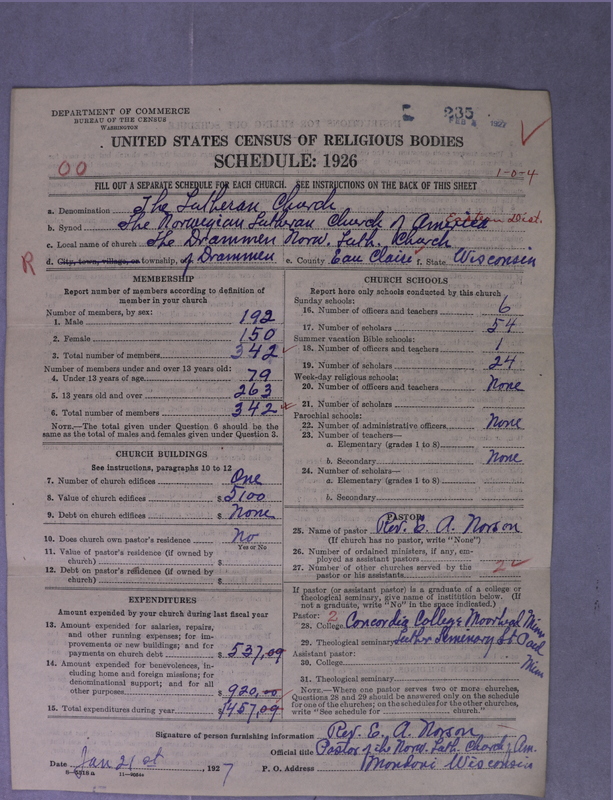 DEPARTMENT OF COMMERCE
BUREAU OF THE CENSUS
WASHINGTON
E 235
1927
UNITED STATES CENSUS OF RELIGIOUS BODIES
SCHEDULE: 1926
00
1-0-4
FILL OUT A SEPARATE SCHEDULE FOR EACH CHURCH. SEE INSTRUCTIONS ON THE BACK OF THIS SHEET
a. Denomination The Lutheran Church
b. Synod The Norwegian Lutheran Church of America Eastern Dist.
c. Local name of church The Drammen Norw. Luth. Church
R
d. City, town, village, or township, of Drammen e. County Eau Claire f. State Wisconsin
MEMBERSHIP
Report number of members according to definition of member in your church
Number of members, by sex:
1. Male 192
2. Female 150
3. Total number of members 342
Number of members under and over 13 years old:
4. Under 13 years of age 79
5. 13 years old and over 263
6. Total number of members 342
NOTE.—The total given under Question 6 should be the
same as the total of males and females given under Question 3.
CHURCH BUILDINGS
See instructions, paragraphs 10 to 12
7. Number of church edifices One
8. Value of church edifices $ 5100
9. Debt on church edifices $ None
10. Does church own pastor's residence? No
Yes or No
11. Value of pastor's residence (if owned by
church) $
12. Debt on pastor's residence (if owned by
church) $
EXPENDITURES
Amount expended by your church during last fiscal year
13. Amount expended for salaries, repairs,
and other running expenses; for im-
provements or new buildings; and for
payments on church debt $ 537,09
14. Amount expended for benevolences, in-
cluding home and foreign missions; for
denominational support; and for all
other purposes $ 920,00
15. Total expenditures during year $ 1457,09
CHURCH SCHOOLS
Report here only schools conducted by this church
Sunday schools:
16. Number of officers and teachers 6
17. Number of scholars 54
Summer vacation Bible schools:
18. Number of officers and teachers 1
19. Number of scholars 24
Week-day religious schools:
20. Number of officers and teachers None
21. Number of scholars
Parochial schools:
22. Number of administrative officers None
23. Number of teachers—
a. Elementary (grades 1 to 8)
b. Secondary None
24. Number of scholars—
a. Elementary (grades 1 to 8)
b. Secondary
PASTOR
25. Name of pastor Rev. E. A. Norson
(If church has no pastor, write "None")
26. Number of ordained ministers, if any, em-
ployed as assistant pastors
27. Number of other churches served by the
pastor or his assistants 2
If pastor (or assistant pastor) is a graduate of a college or
theological seminary, give name of institution below. (If
not a graduate, write "No" in the space indicated.)
Pastor: 2
28. College Concordia College Moorhead Minn
29. Theological seminary Luther Semenery St Paul Minn
Assistant pastor:
30. College
31. Theological seminary
NOTE.—Where one pastor serves two or more churches,
Questions 28 and 29 should be answered only on the schedule
for one of the churches; on the schedules for the other churches,
write "See schedule for church."
Signature of person furnishing information Rev. E. A. Norson
Official title Pastor of the Norw. Luth. Church of Am.
Date Jan 21st, 1927 P. O. Address Mondovi Wisconsin